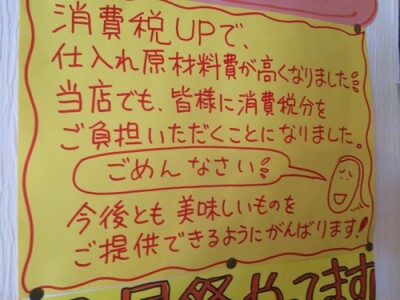 消費税UPで、
仕入れ原材料費が高くなりました。
当店でも、皆様に消費税分を
ご負担いただくことになりました。
ごめんなさい
今後とも美味しいものを
ご提供できるようにがんばります!
祭やってます